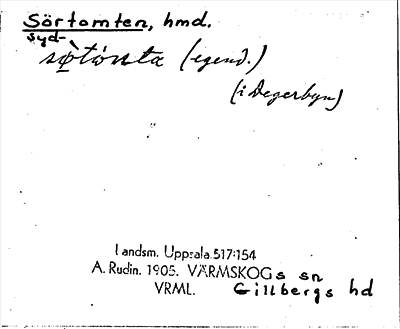 Sörtomten, hmd.
syd-
søtómta (egend.)
(i Degerbyn)
Landsm. Uppsala 517:154
A. Rudin. 1905. VÄRMSKOGs sn
VRML. Gillbergs hd